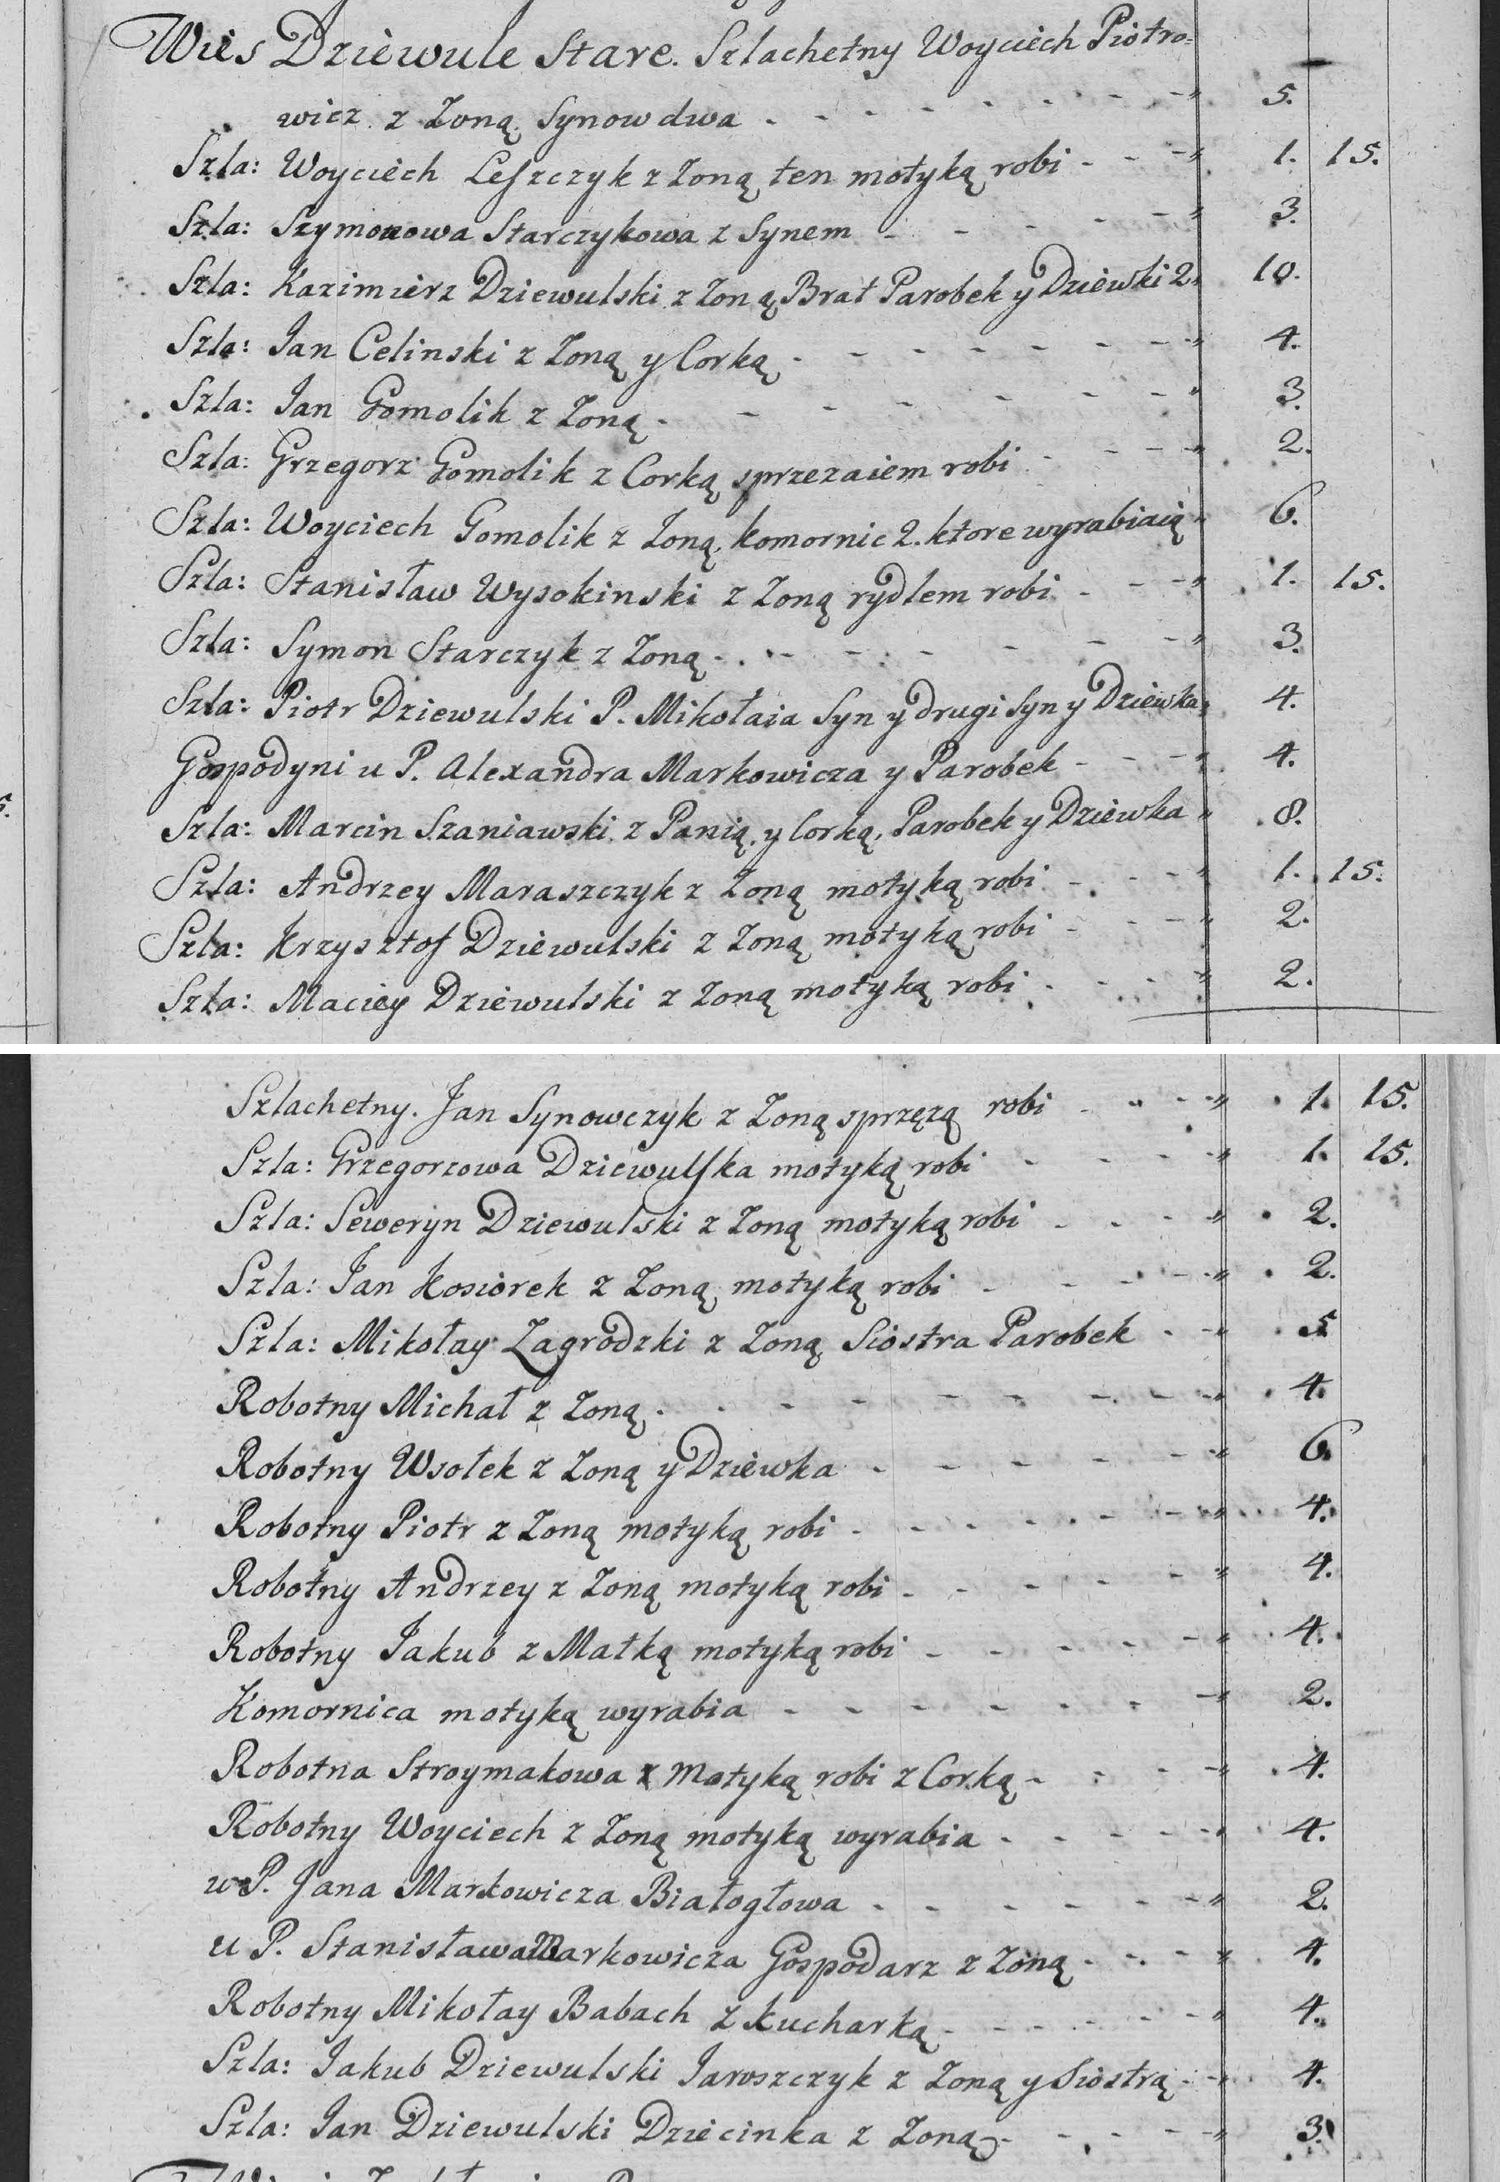 Wies Dziewule Stare. Szlachetny Woyciech Piotro=
wicz z Zoną Synow dwa - - - - - - - - " 5.
Szla: Woyciech Leszczyk z Zoną ten motyką robi - - - " 1. 15.
Szla: Szymonowa Starczykowa z Synem - - - - - " 3.
Szla: Kazimierz Dziewulski z Zoną Brat Parobek y Dziewki 2. 10.
Szla: Jan Celinski z Zoną y Corką - - - - - - - - " 4.
Szla: Jan Gomolik z Zoną - - - - - - - - " 3.
Szla: Grzegorz Gomolik z Corką sprzezaiem robi - - - - " 2.
Szla: Woyciech Gomolik z Zoną, komornic 2. ktore wyrabiaią " 6.
Szla: Stanisław Wysokinski z Zoną rydlem robi - - - " 1. 15.
Szla: Symon Starczyk z Zoną - - - - - - - " 3.
Szla: Piotr Dziewulski P. Mikołaia Syn y drugi Syn y Dziewka " 4.
Gospodyni u P. Alexandra Markowicza y Parobek - - - - " 4.
Szla: Marcin Szaniawski z Panią, y Corką, Parobek y Dziewka " 8.
Szla: Andrzey Maraszczyk z Zoną motyką robi - - - " 1. 15.
Szla: Krzysztof Dziewulski z Zoną motyką robi - - - " 2.
Szla: Maciey Dziewulski z Zoną motyką robi - - - - " 2.
Szlachetny. Jan Synowczyk z Zoną sprzęzą robi - - - - " 1. 15.
Szla: Grzegorzowa Dziewulska motyką robi - - - - " 1. 15.
Szla: Seweryn Dziewulski z Zoną motyką robi - - - - " 2.
Szla: Jan Kosiorek z Zoną motyką robi - - - - - " 2.
Szla: Mikołay Zagrodzki z Zoną Siostra Parobek - - " 5
Robotny Michał z Zoną - - - - - - - - - " 4.
Robotny Wsołek z Zoną y Dziewka - - - - - - " 6.
Robotny Piotr z Zoną motyką robi - - - - - - - " 4.
Robotny Andrzey z Zoną motyką robi - - - - - - " 4.
Robotny Jakub z Matką motyką robi - - - - - - " 4.
Komornica motyką wyrabia - - - - - - - - " 2.
Robotna Stroymakowa z Motyką robi z Corką - - - - " 4.
Robotny Woyciech z Zoną motyką wyrabia - - - - - " 4.
u P. Jana Markowicza Białogłowa - - - - - - - " 2.
u P. Stanisława Markowicza Gospodarz z Zoną - - - " 4.
Robotny Mikołay Babach z Kucharką - - - - - - " 4.
Szla: Jakub Dziewulski Jaroszczyk z Zoną y Siostrą - - " 4.
Szla: Jan Dziewulski Dziecinka z Zoną - - - - - " 3.